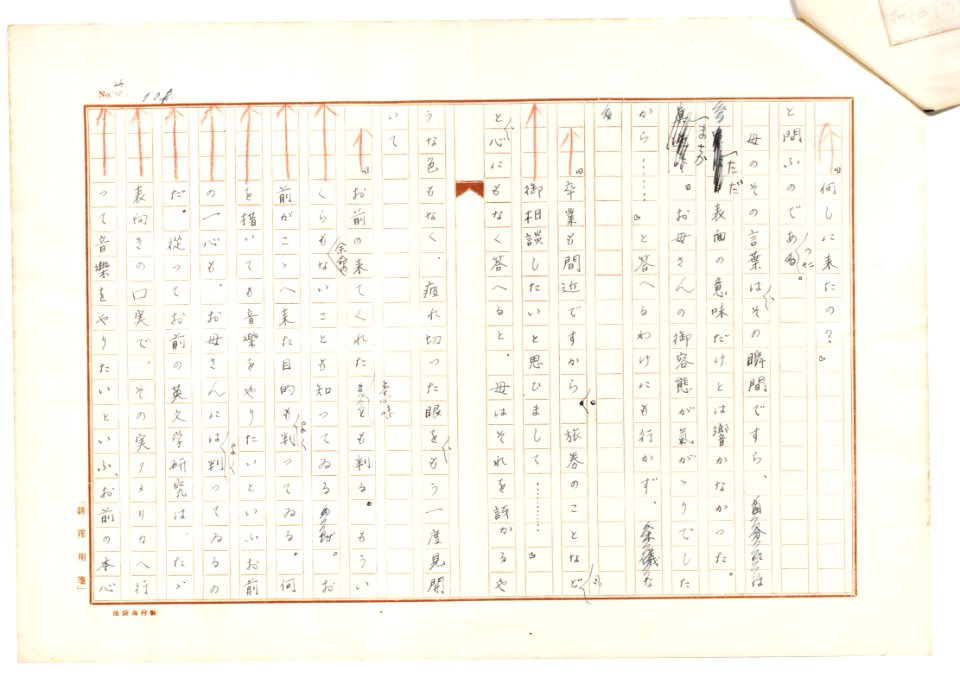 「何しに来たの？」
と問ふのであつた。
母のその言葉は、その瞬間ですら、
ただ表面の意味だけとは響かなかつた。
まさか「お母さんの御容態が氣がゝりでした
から……」と答へるわけにも行かず、
「卒業も間近ですから、旅券のことなど、
御相談したいと思ひまして………」
と、心にもなく答へると、母はそれを訝かるや
うな色もなく、疲れ切つた眼を、もう一度見開
いて
「お前の来てくれた意味も判る。もうい
くらも余命ないことも知つてゐる。お
前がこゝへ来た目的もよく判つてゐる。何
を措いても音樂をやりたいといふお前
の一心も、お母さんにはよく判つてゐるの
だ。従つてお前の英文学研究は、たゞ
表向きの口実で、その実アメリカへ行
つて音樂をやりたいといふ、お前の本心
No. 26